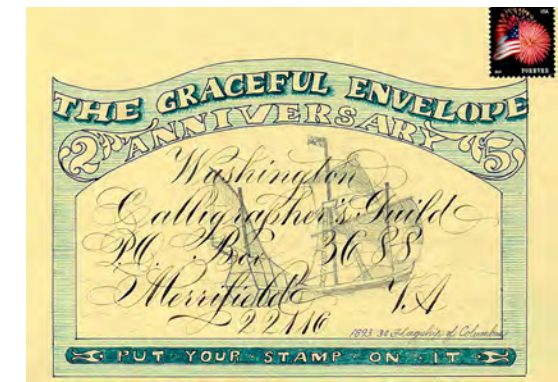 USA
FOREVER
THE GRACEFUL ENVELOPE
2 ANNIVERSARY 5
Washington
Calligrapher's Guild
P.O. Box 3688
Merrifield VA
22116
1893 3¢ Flagship of Columbus
PUT YOUR STAMP ON IT